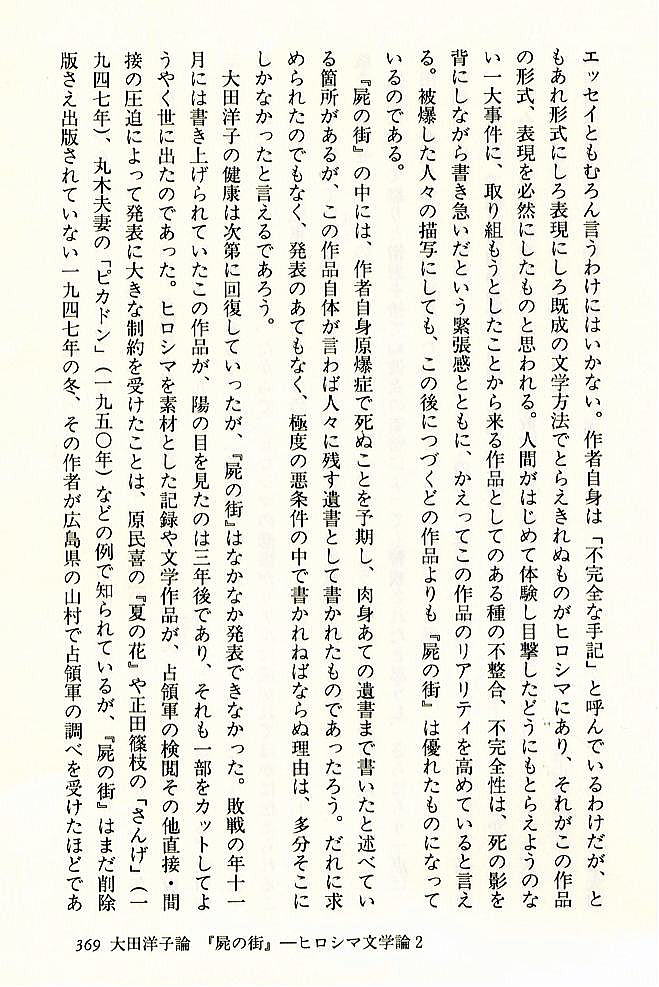 エッセイともむろん言うわけにはいかない。作者自身は「不完全な手記」と呼んでいるわけだが、と
もあれ形式にしろ表現にしろ既成の文学方法でとらえきれぬものがヒロシマにあり、それがこの作品
の形式、表現を必然にしたものと思われる。人間がはじめて体験し目撃したどうにもとらえようのな
い一大事件に、取り組もうとしたことから来る作品としてのある種の不整合、不完全性は、死の影を
背にしながら書き急いだという緊張感とともに、かえってこの作品のリアリティを高めていると言え
る。被爆した人々の描写にしても、この後につづくどの作品よりも『屍の街』は優れたものになって
いるのである。
『屍の街』の中には、作者自身原爆症で死ぬことを予期し、肉身あての遺書まで書いたと述べてい
る箇所があるが、この作品自体が言わば人々に残す遺書として書かれたものであったろう。だれに求
められたのでもなく、発表のあてもなく、極度の悪条件の中で書かれねばならぬ理由は、多分そこに
しかなかったと言えるであろう。
大田洋子の健康は次第に回復していったが、『屍の街』はなかなか発表できなかった。敗戦の年十一
月には書き上げられていたこの作品が、陽の目を見たのは三年後であり、それも一部をカットしてよ
うやく世に出たのであった。ヒロシマを素材とした記録や文学作品が、占領軍の検閲その他直接・間
接の圧迫によって発表に大きな制約を受けたことは、原民喜の『夏の花』や正田篠枝の「さんげ」（一
九四七年）、丸木夫妻の「ピカドン」（一九五〇年）などの例で知られているが、『屍の街』はまだ削除
版さえ出版されていない一九四七年の冬、その作者が広島県の山村で占領軍の調べを受けたほどであ
369 大田洋子論 『屍の街』―ヒロシマ文学論2